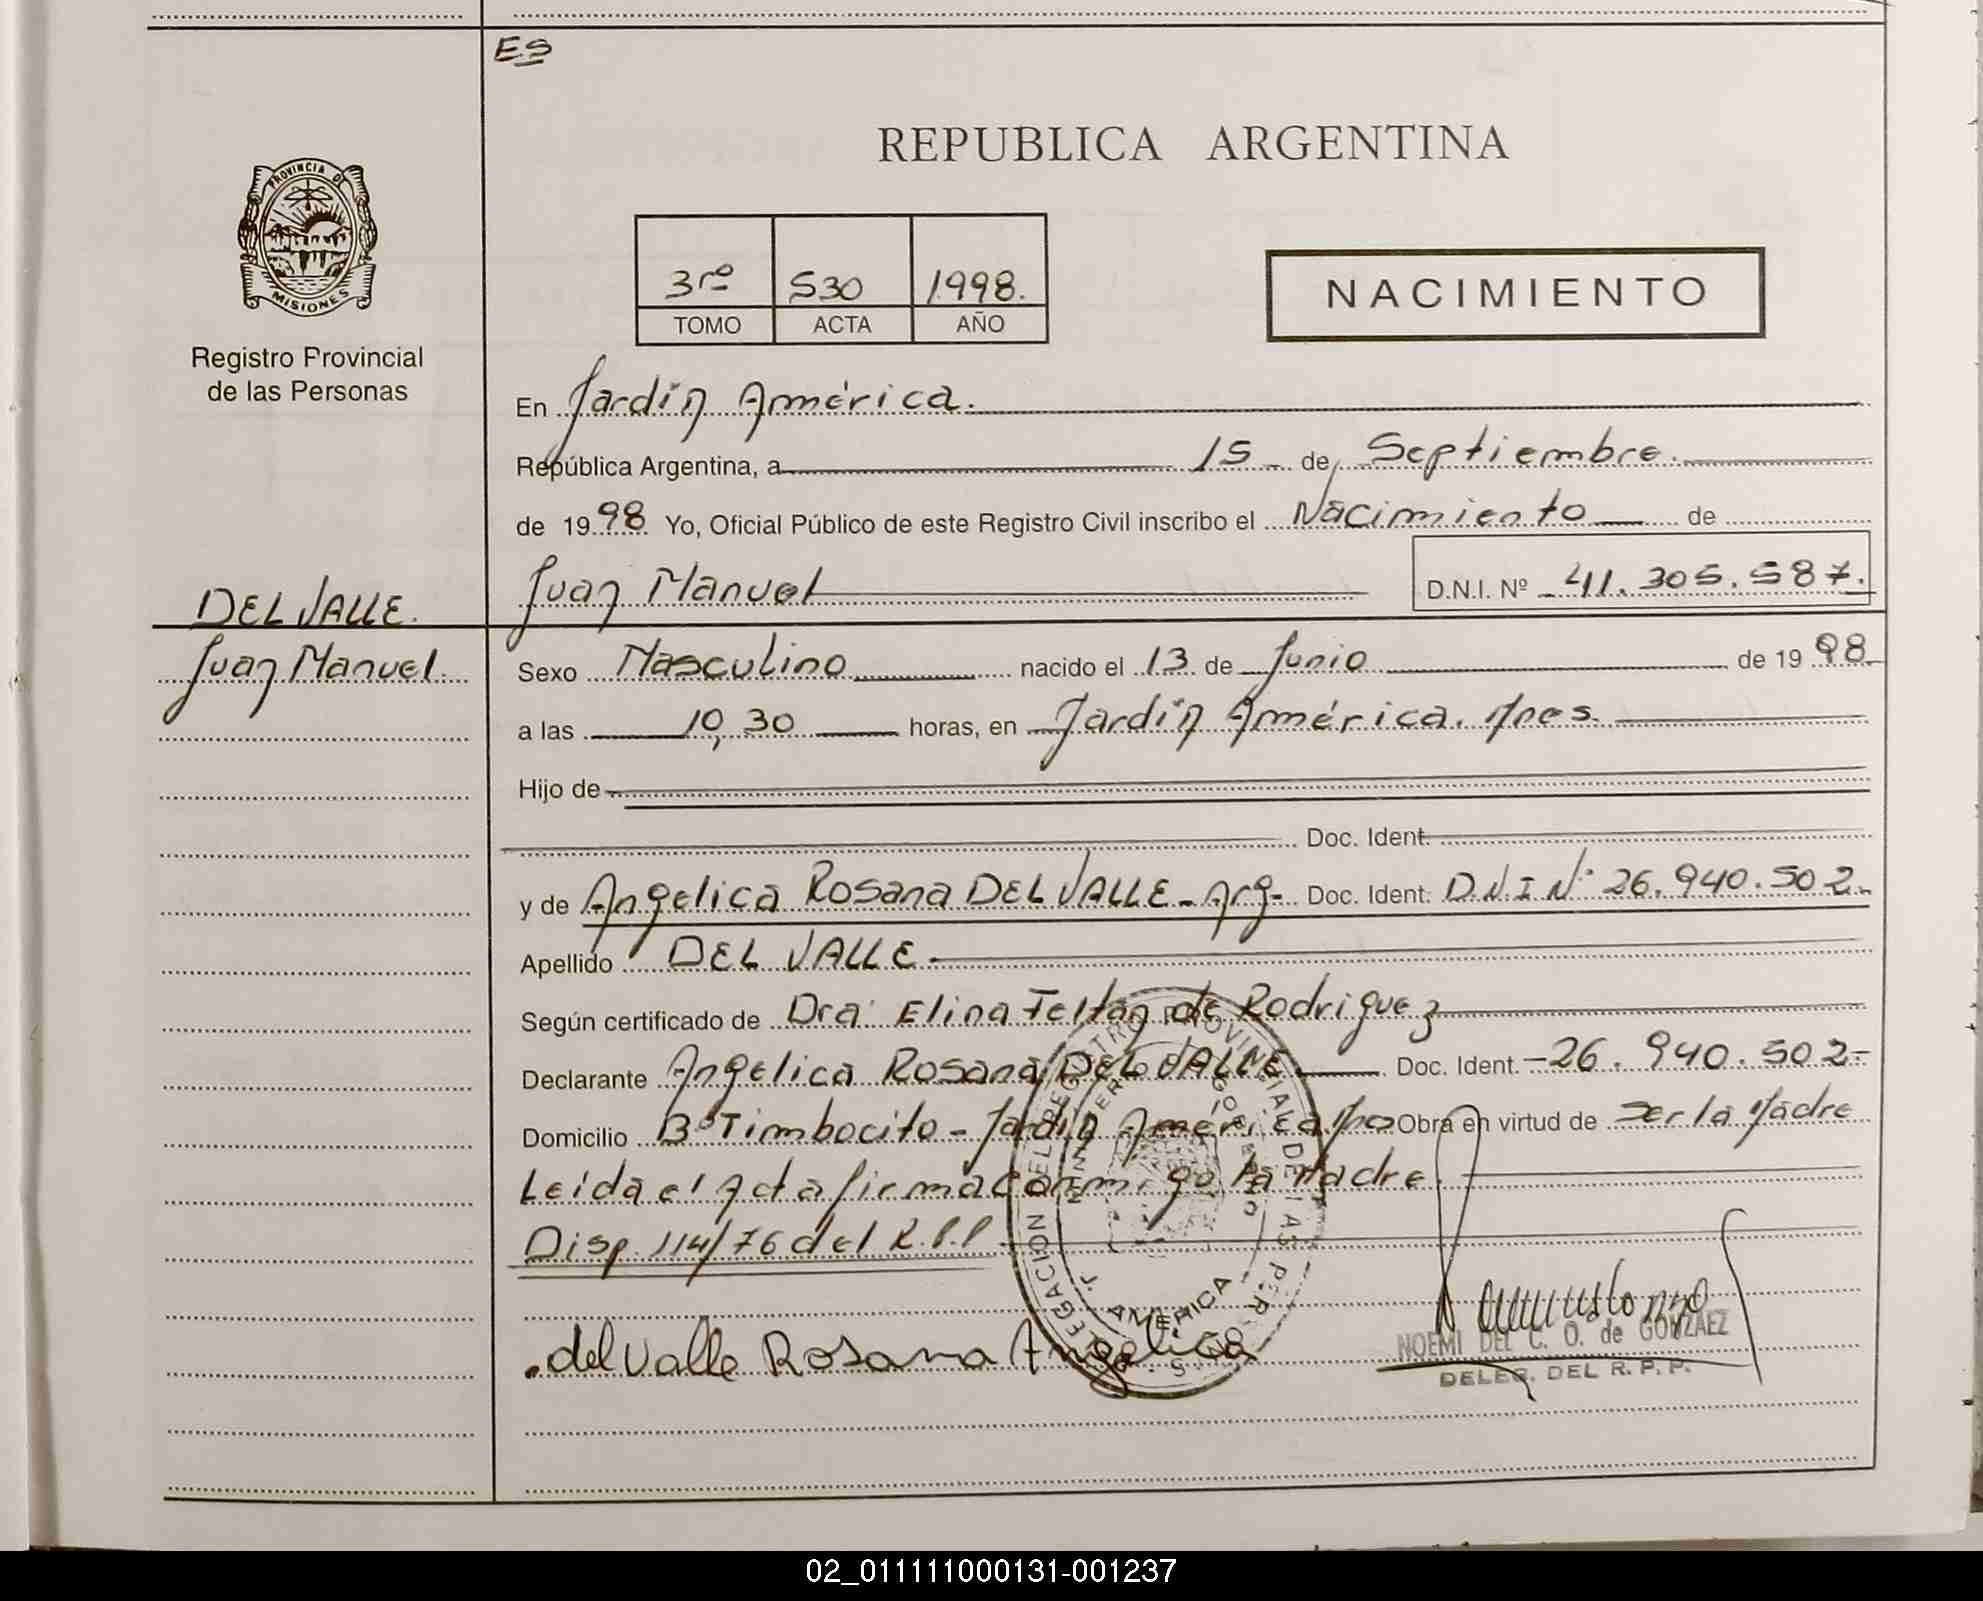 ES
REPUBLICA ARGENTINA
PROVINCIA DE
MISIONES
Registro Provincial
de las Personas
3ro 530 1998.
TOMO ACTA AÑO
NACIMIENTO
En Jardín América.
República Argentina, a 15 de Septiembre.
de 1998 Yo, Oficial Público de este Registro Civil inscribo el Nacimiento de
Juan Manuel D.N.I. Nº 41.305.587.
DEL VALLE.
Juan Manuel.
Sexo Masculino nacido el 13 de Junio de 1998
a las 10,30 horas, en Jardín América. Mnes.
Hijo de
Doc. Ident.
y de Angelica Rosana DEL VALLE - Arg- Doc. Ident. D.N.I Nº 26.940.502.-
Apellido DEL VALLE
Según certificado de Dra Elina Teltan de Rodriguez
Declarante Angelica Rosana DEL VALLE Doc. Ident. -26.940.502-
Domicilio Bº Timbocito - Jardín América. Obra en virtud de ser la Madre
Leída el Acta firma conmigo la Madre
Disp. 114/76 del R.P.P
DELEGACION DEL REGISTRO PROVINCIAL DE LAS PERS
J. AMERICA
del Valle Rosana Angelica
NOEMI DEL C. O. de GONZAEZ
DELEG. DEL R. P. P.
02_011111000131-001237